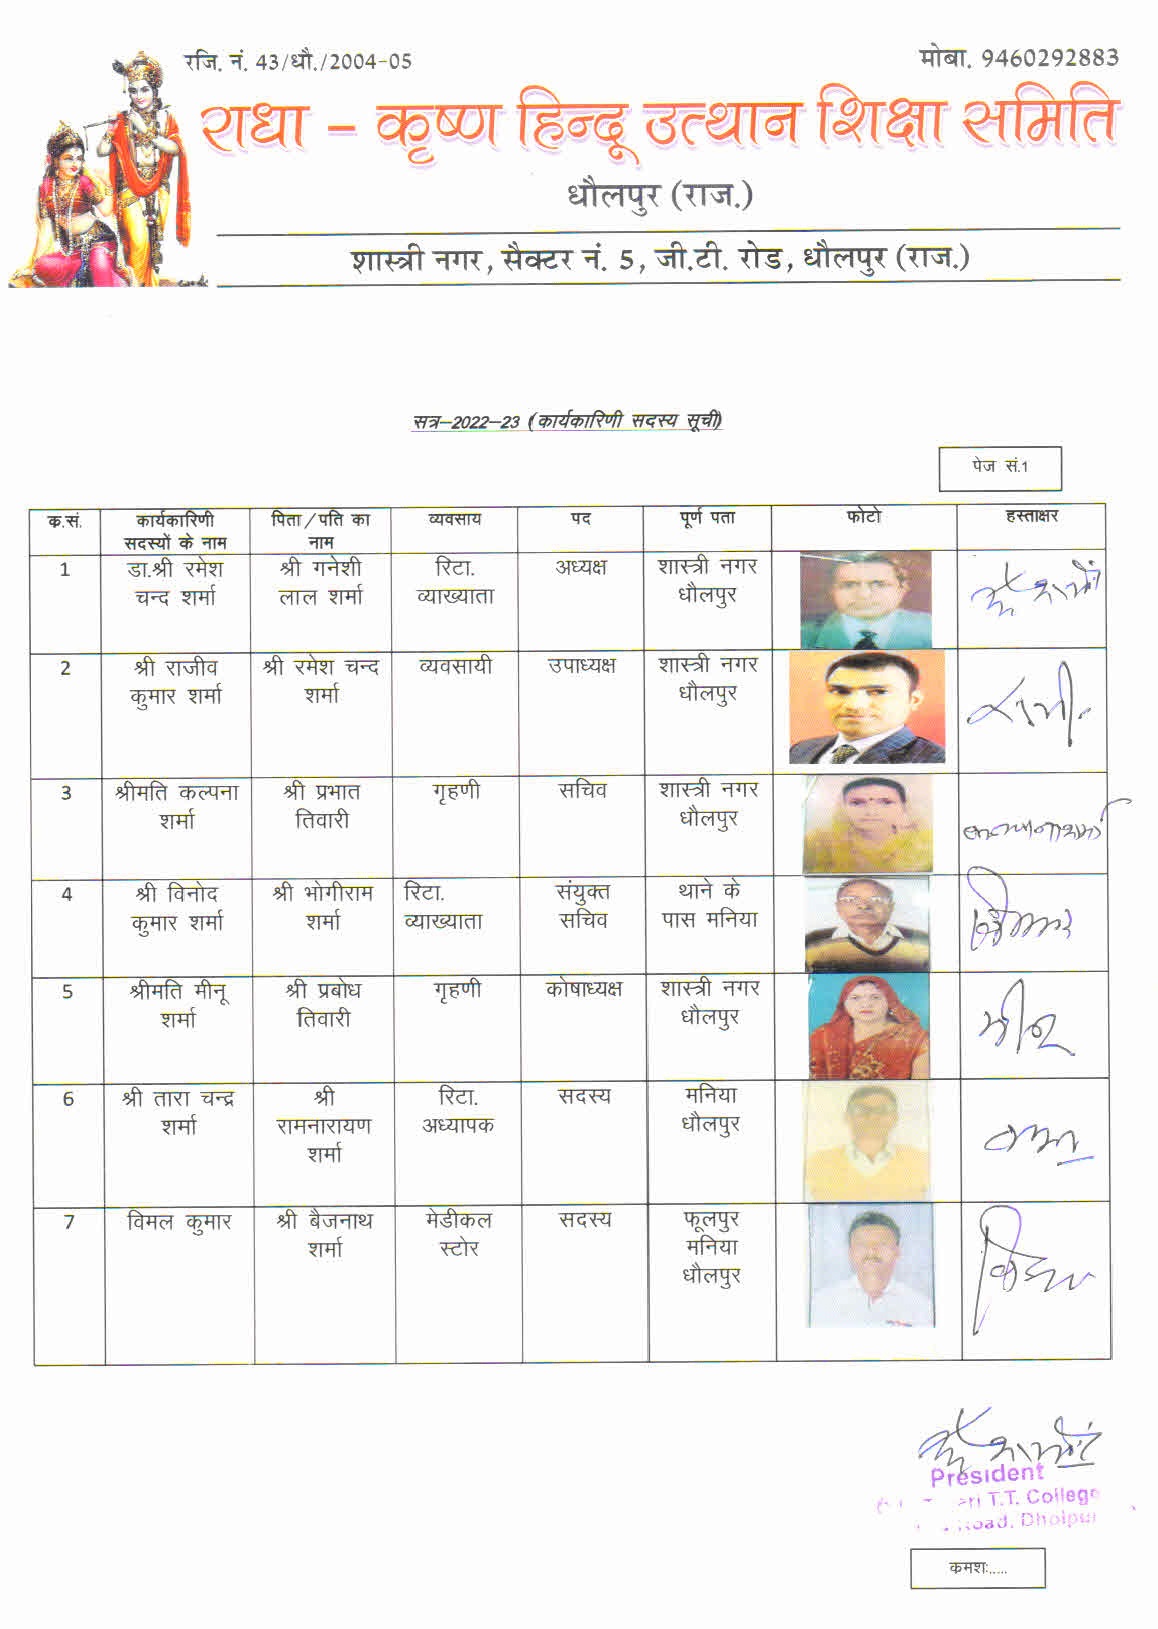 रजि. नं. 43/धौ./2004-05
मोबा. 9460292883
राधा - कृष्ण हिन्दू उत्थान शिक्षा समिति
धौलपुर (राज.)
शास्त्री नगर, सैक्टर नं. 5, जी.टी. रोड, धौलपुर (राज.)
सत्र–2022–23 (कार्यकारिणी सदस्य सूची)
पेज सं.1
क.सं. कार्यकारिणी सदस्यों के नाम पिता/पति का नाम व्यवसाय पद पूर्ण पता फोटो हस्ताक्षर
1 डा.श्री रमेश चन्द शर्मा श्री गनेशी लाल शर्मा रिटा. व्याख्याता अध्यक्ष शास्त्री नगर धौलपुर
2 श्री राजीव कुमार शर्मा श्री रमेश चन्द शर्मा व्यवसायी उपाध्यक्ष शास्त्री नगर धौलपुर
3 श्रीमति कल्पना शर्मा श्री प्रभात तिवारी गृहणी सचिव शास्त्री नगर धौलपुर
कल्पना शर्मा
4 श्री विनोद कुमार शर्मा श्री भोगीराम शर्मा रिटा. व्याख्याता संयुक्त सचिव थाने के पास मनिया
5 श्रीमति मीनू शर्मा श्री प्रबोध तिवारी गृहणी कोषाध्यक्ष शास्त्री नगर धौलपुर
मीनू
6 श्री तारा चन्द्र शर्मा श्री रामनारायण शर्मा रिटा. अध्यापक सदस्य मनिया धौलपुर
7 विमल कुमार श्री बैजनाथ शर्मा मेडीकल स्टोर सदस्य फूलपुर मनिया धौलपुर
President
T.T. College
Road, Dholpur
कमशः.....